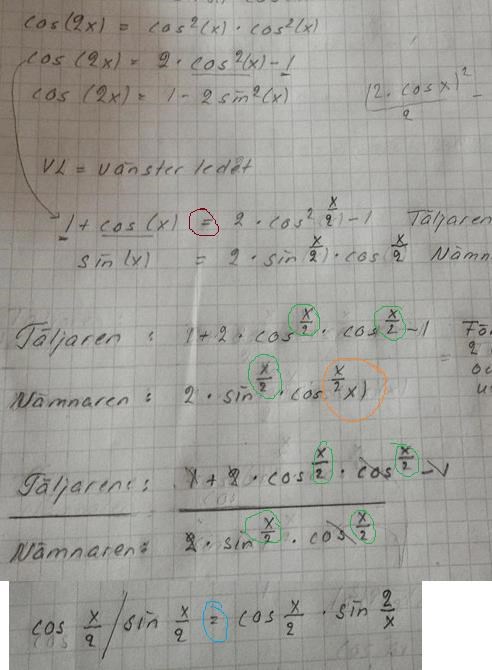 cos(2x) = cos²(x) · cos²(x)
cos (2x) = 2 · cos²(x) - 1
cos (2x) = 1 - 2 sin²(x)
(2 · cos x)² -
2
VL = vänster ledet
1 + cos (x) = 2 · cos² x/2) - 1 Täljaren
sin(x) = 2 · sin(x/2) · cos(x/2 Nämn
Täljaren : 1 + 2 · cos x/2 · cos x/2 - 1
Nämnaren : 2 · sin x/2 · cos x/2 x)
=
Täljaren: : 1 + 2 · cos x/2 · cos x/2 - 1
Nämnaren: 2 · sin x/2 · cos x/2
cos x/2 / sin x/2 = cos x/2 · sin 2/x